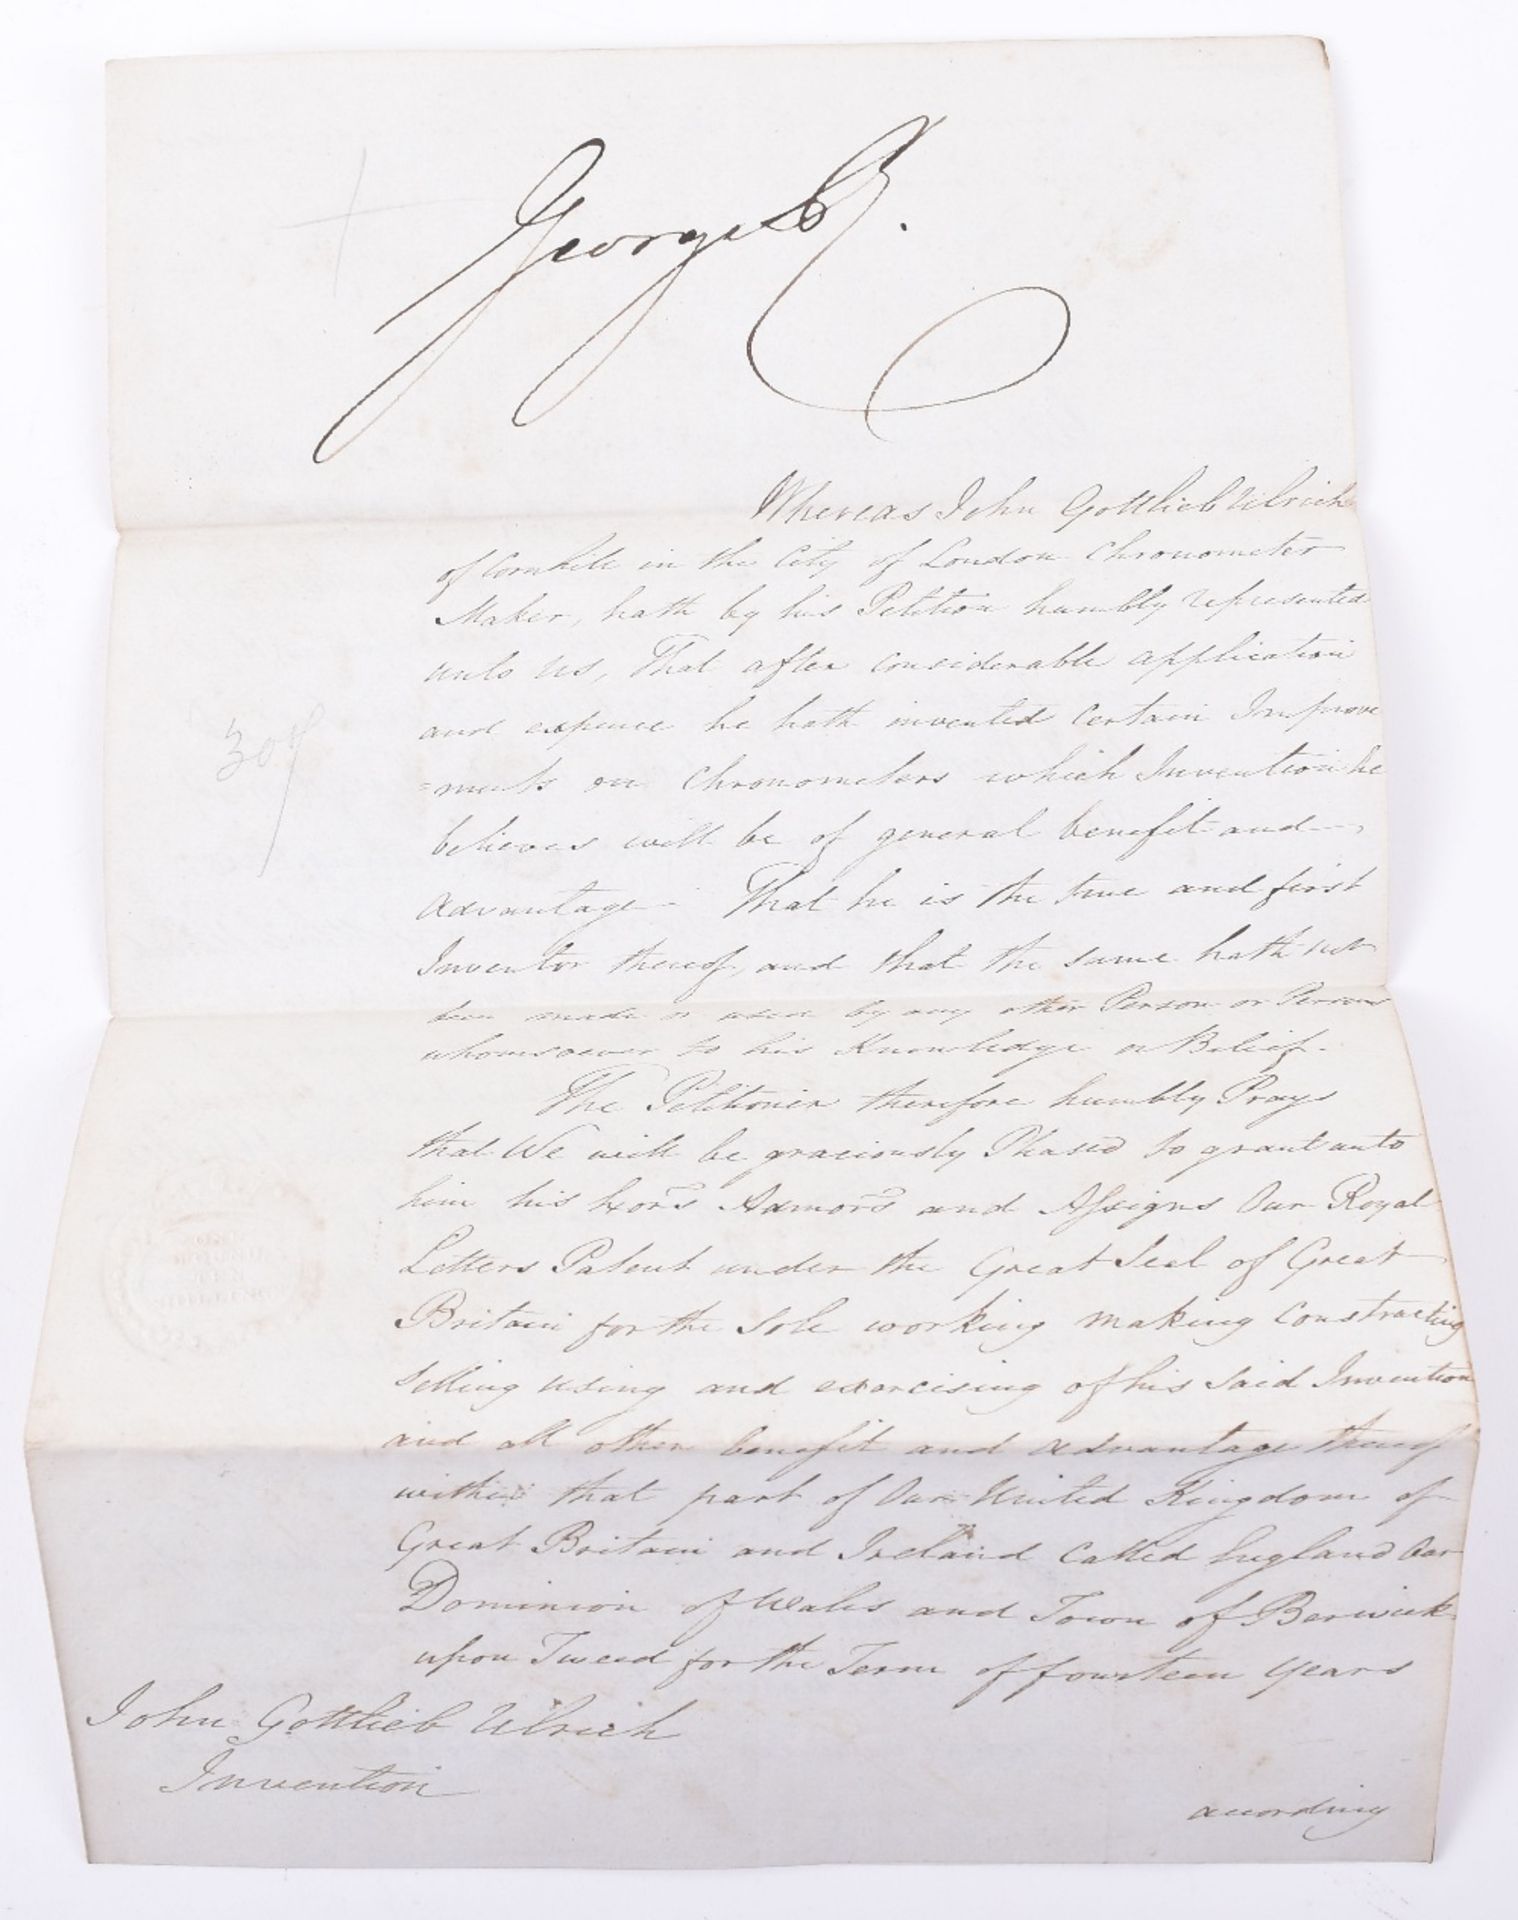 George R.
Whereas John Gottlieb Ulrich
of Cornhill in the City of London Chronometer
Maker, hath by his Petition humbly represented
unto us, That after considerable application
and expence he hath invented certain Improve
=ments on Chronometers which Invention he
believes will be of general benefit and
Advantage. That he is the true and first
Inventor thereof, and that the same hath not
been made or used by any other Person or Persons
whomsoever to his Knowledge or Belief.
The Petitioner therefore humbly Prays
that We will be graciously Pleased to grant unto
him his Exors Admors and Assigns Our Royal
Letters Patent under the Great Seal of Great
Britain for the Sole working making constructing
selling using and exercising of his Said Invention
and all other benefit and advantage thereof
within that part of Our United Kingdom of
Great Britain and Ireland Called England Our
Dominion of Wales and Town of Berwick
upon Tweed for the Term of fourteen years
John Gottlieb Ulrich
Invention
according
307